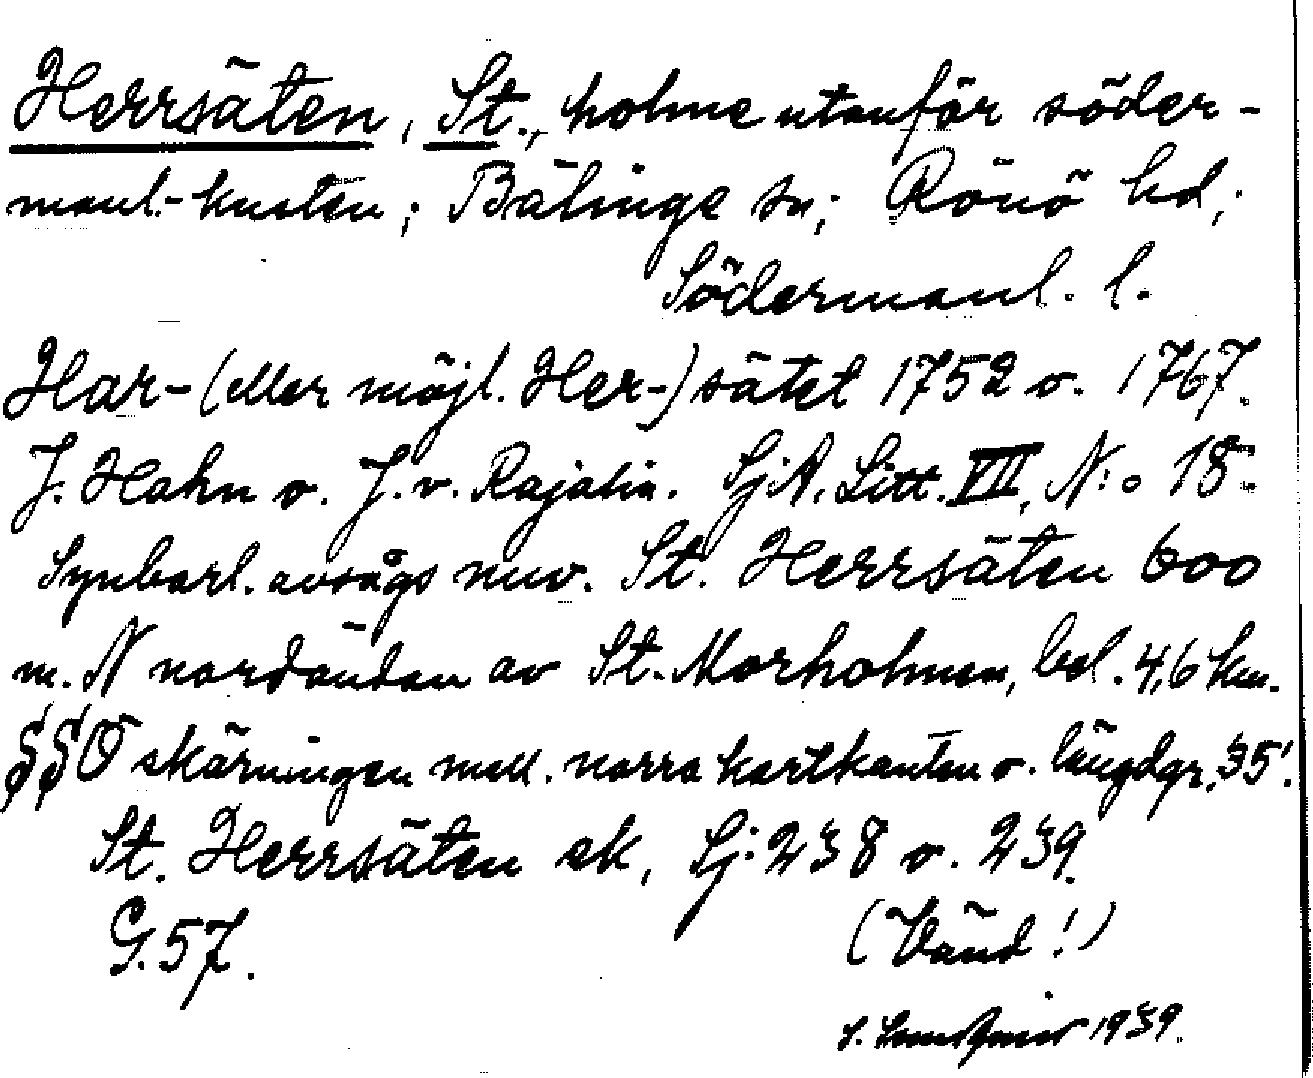 Herrsäten, St., holme utanför söder-
manl.-kusten; Bälinge sn; Rönö hd;
Södermanl. l.
Har- (eller möjl. Her-) sätet 1752 o. 1767.
J. Hahn o. J. v. Rajalin. SjA. Litt. VII, N:o 18.
Synbarl. avsågs nuv. St. Herrsäten 600
m. N nordändan av St. Morholmen, bel. 4,6 km.
§§O skärningen mell. norra kartkanten o. längdgr. 35'.
St. Herrsäten ek, Sj: 238 o. 239.
G. 57. (Vänd!)
1939.